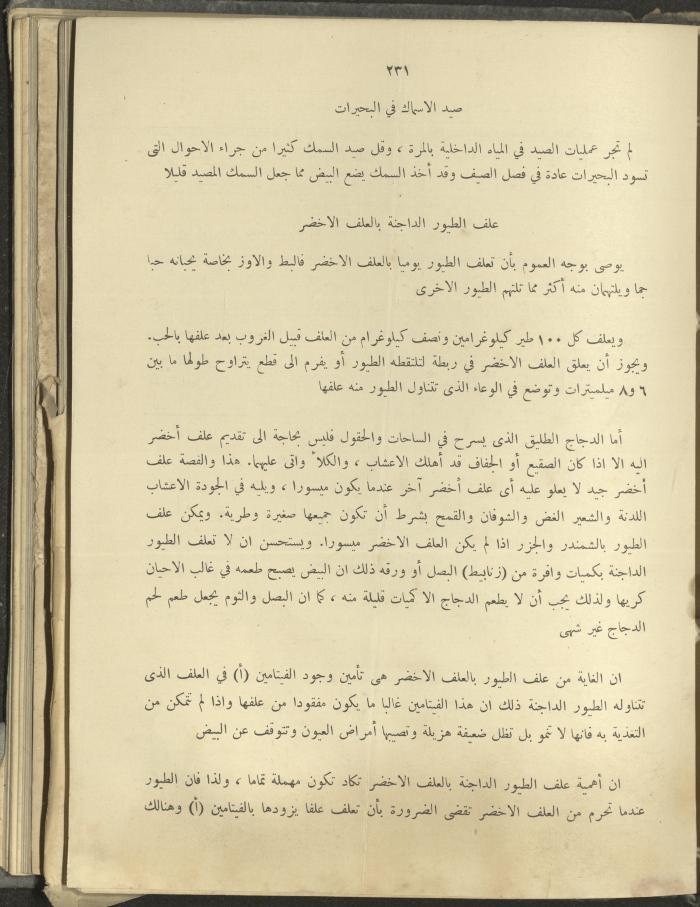 ٢٣١
صيد الاسماك في البحيرات
لم تجر عمليات الصيد في المياه الداخلية بالمرة ، وقل صيد السمك كثيرا من جراء الاحوال التى
تسود البحيرات عادة في فصل الصيف وقد أخذ السمك يضع البيض مما جعل السمك المصيد قليلا
علف الطيور الداجنة بالعلف الاخضر
يوصى بوجه العموم بأن تعلف الطيور يوميا بالعلف الاخضر فالبط والاوز بخاصة يحبانه حبا
جما ويلتهمان منه أكثر مما تلتهم الطيور الاخرى
ويعلف كل ١٠٠ طير كيلوغرامين ونصف كيلوغرام من العلف قبيل الغروب بعد علفها بالحب.
ويجوز أن يعلق العلف الاخضر في ربطة لتلتقطه الطيور أو يفرم الى قطع يتراوح طولها ما بين
٦ و٨ ميلميترات وتوضع في الوعاء الذى تتناول الطيور منه علفها
أما الدجاج الطليق الذى يسرح في الساحات والحقول فليس بحاجة الى تقديم علف أخضر
اليه الا اذا كان الصقيع أو الجفاف قد أهلك الاعشاب ، والكلأ واتى عليهما. هذا والفصة علف
أخضر جيد لا يعلو عليه أى علف أخضر آخر عندما يكون ميسورا ، ويليه في الجودة الاعشاب
اللدنة والشعير الغض والشوفان والقمح بشرط أن تكون جميعها صغيرة وطرية. ويمكن علف
الطيور بالشمندر والجزر اذا لم يكن العلف الاخضر ميسورا. ويستحسن ان لا تعلف الطيور
الداجنة بكميات وافرة من (زنابيط) البصل أو ورقه ذلك ان البيض يصبح طعمه في غالب الاحيان
كريها ولذلك يجب أن لا يطعم الدجاج الا كميات قليلة منه ، كما ان البصل والثوم يجعل طعم لحم
الدجاج غير شهى
ان الغاية من علف الطيور بالعلف الاخضر هى تأمين وجود الفيتامين (أ) في العلف الذى
تتناوله الطيور الداجنة ذلك ان هذا الفيتامين غالبا ما يكون مفقودا من علفها واذا لم تتمكن من
التغذية به فانها لا تنمو بل تظل ضعيفة هزيلة وتصيبها أمراض العيون وتتوقف عن البيض
ان أهمية علف الطيور الداجنة بالعلف الاخضر تكاد تكون مهملة تماما ، ولذا فان الطيور
عندما تحرم من العلف الاخضر تقضى الضرورة بأن تعلف علفا يزودها بالفيتامين (أ) وهنالك